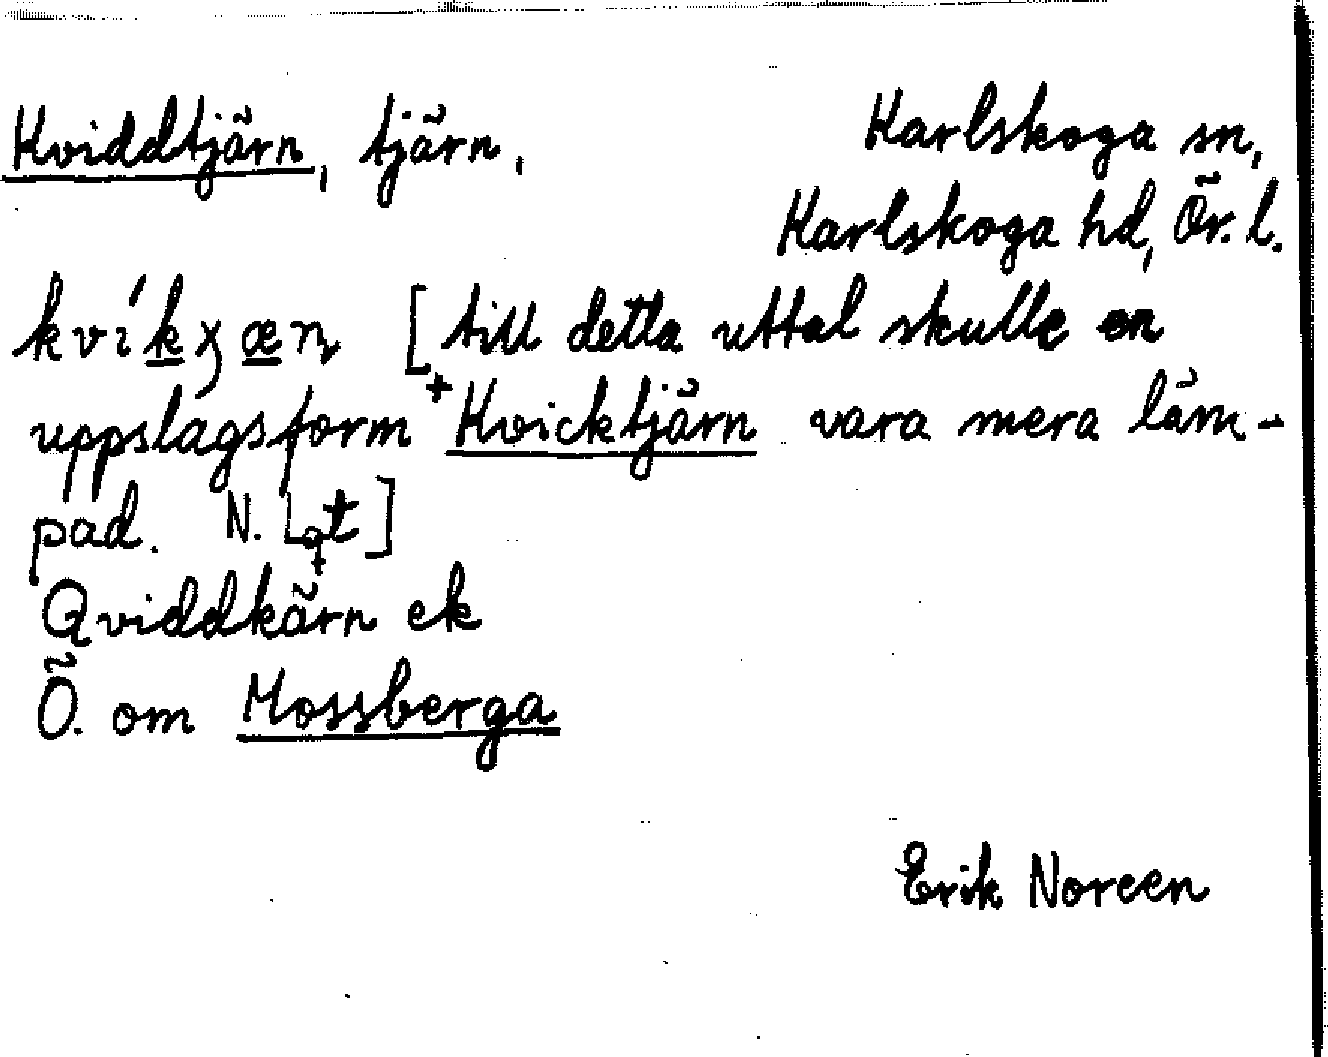 Kviddtjärn, tjärn, Karlskoga sn,
Karlskoga hd, Ör. l.
[till detta uttal skulle en
uppslagsform +Kvicktjärn vara mera läm-
pad. N.
Qviddkärn ek
Ö. om Mossberga
Erik Noreen